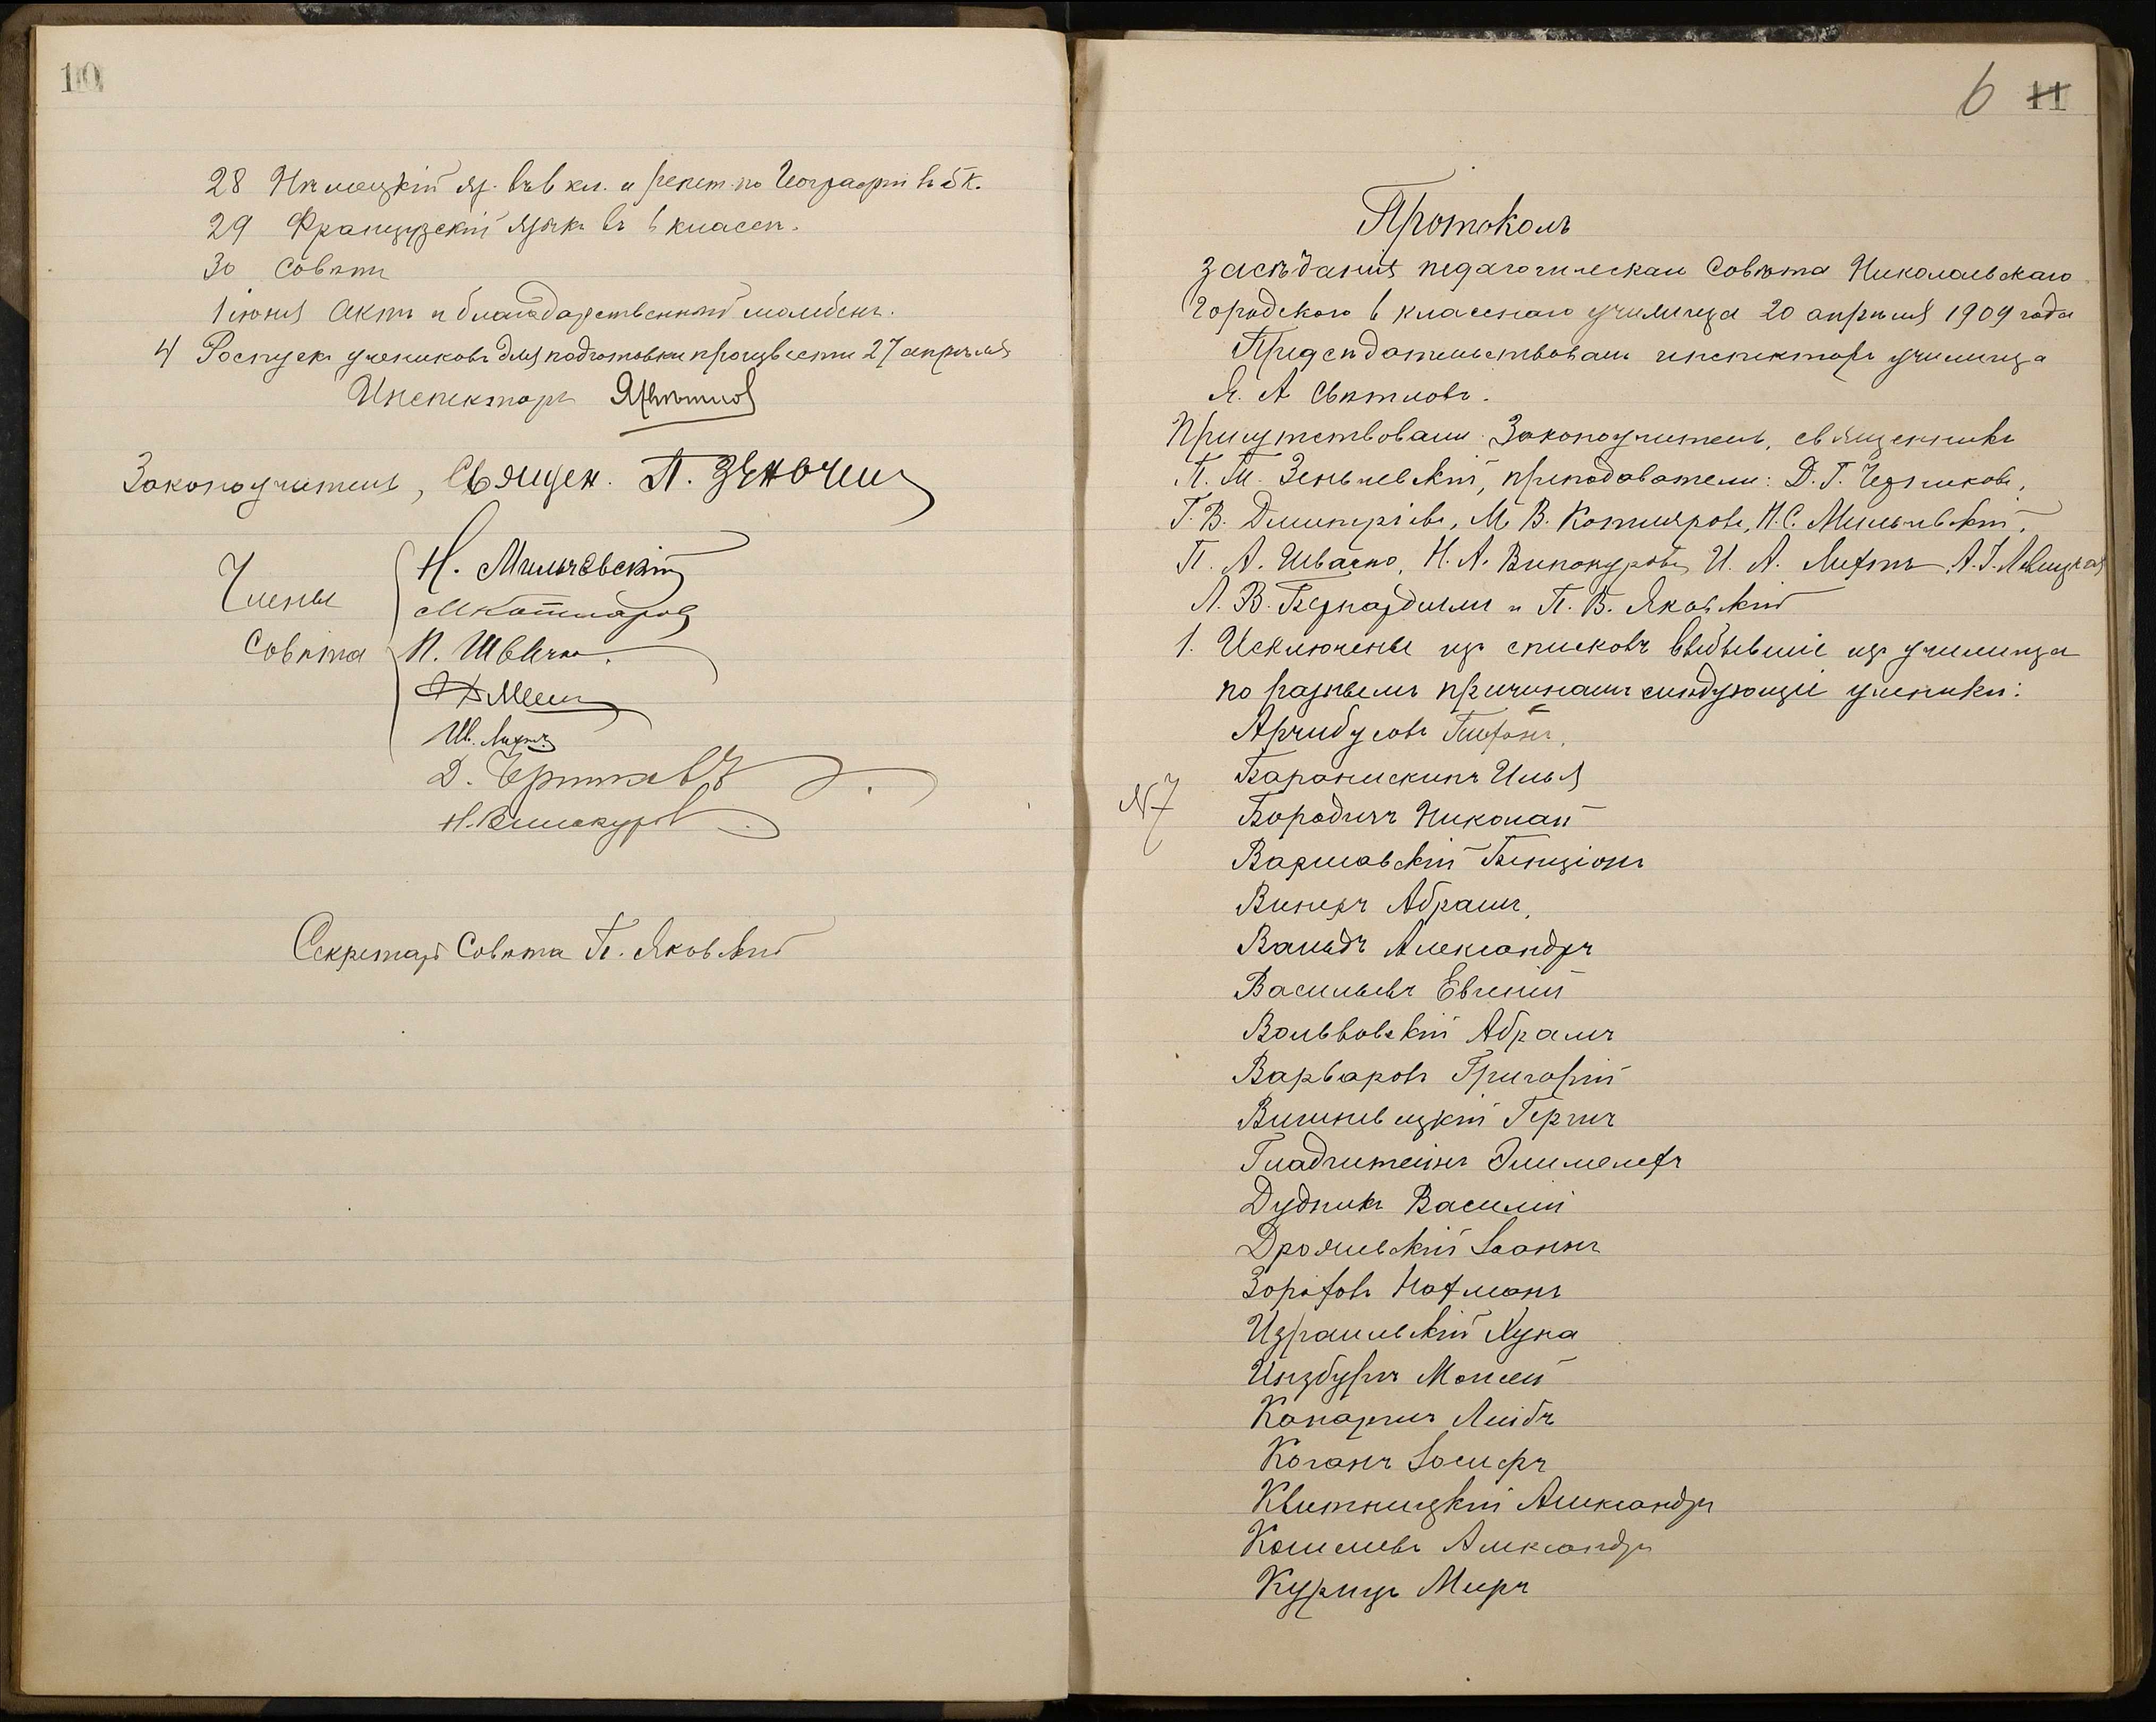 10
28 Нѣмецкій яз. въ 6 кл. и репет. по Географіи въ 5 к.
29 Французскій языкъ въ 6 классѣ.
30 Совѣтъ
1 іюня Актъ и благодарственный молебенъ.
4 Роспускъ учениковъ для подготовки произвести 27 апрѣля
Инспекторъ ЯСвѣтлов
Законоучитель, Священ. П. Зѣньчев
Члены
Совѣта
Н. Мильчевскій
МКотляровъ
П. Швачко.
Ив. Лихтъ
Д. Чертковъ
Н. Винокуровъ
Секретарь Совѣта П. Яковскій
6 11
Протоколъ
засѣданія педагогическаго Совѣта Николаевскаго
Городского 6 класснаго училища 20 апрѣля 1909 года
Предсѣдательствовалъ инспекторъ училища
Я. А Свѣтловъ.
Присутствовали: Законоучитель, священникъ
П. М. Зеньчевскій, преподаватели: Д. Г. Чертковъ,
Г. В. Дмитріевъ, М. В. Котляровъ, Н. С. Мильчевскій,
П. А. Швачко, Н. А. Винокуровъ, И. А. Лихтъ, А. І. Левицкая
Л. В. Бернардъ и П. В. Яковскій
1. Исключены изъ списковъ выбывшіе изъ училища
по разнымъ причинамъ слѣдующіе ученики:
Арчибусовъ Тихонъ,
Баранискинъ Илья
N 7
Бородичъ Николай
Варшавскій Бенціонъ
Винеръ Абрамъ,
Вальдъ Александръ
Васильевъ Евгеній
Вольвовскій Абрамъ
Варваровъ Григорій
Вишневецкій Гершъ
Гладштейнъ Элимелехъ
Дудникъ Василій
Дромлевскій Іоаннъ
Зороховъ Нахманъ
Израилевскій Хуна
Инзбургъ Моисей
Канаргинъ Лейбъ
Коганъ Іосифъ
Квитницкій Александръ
Кошелевъ Александръ
Курицъ Мееръ